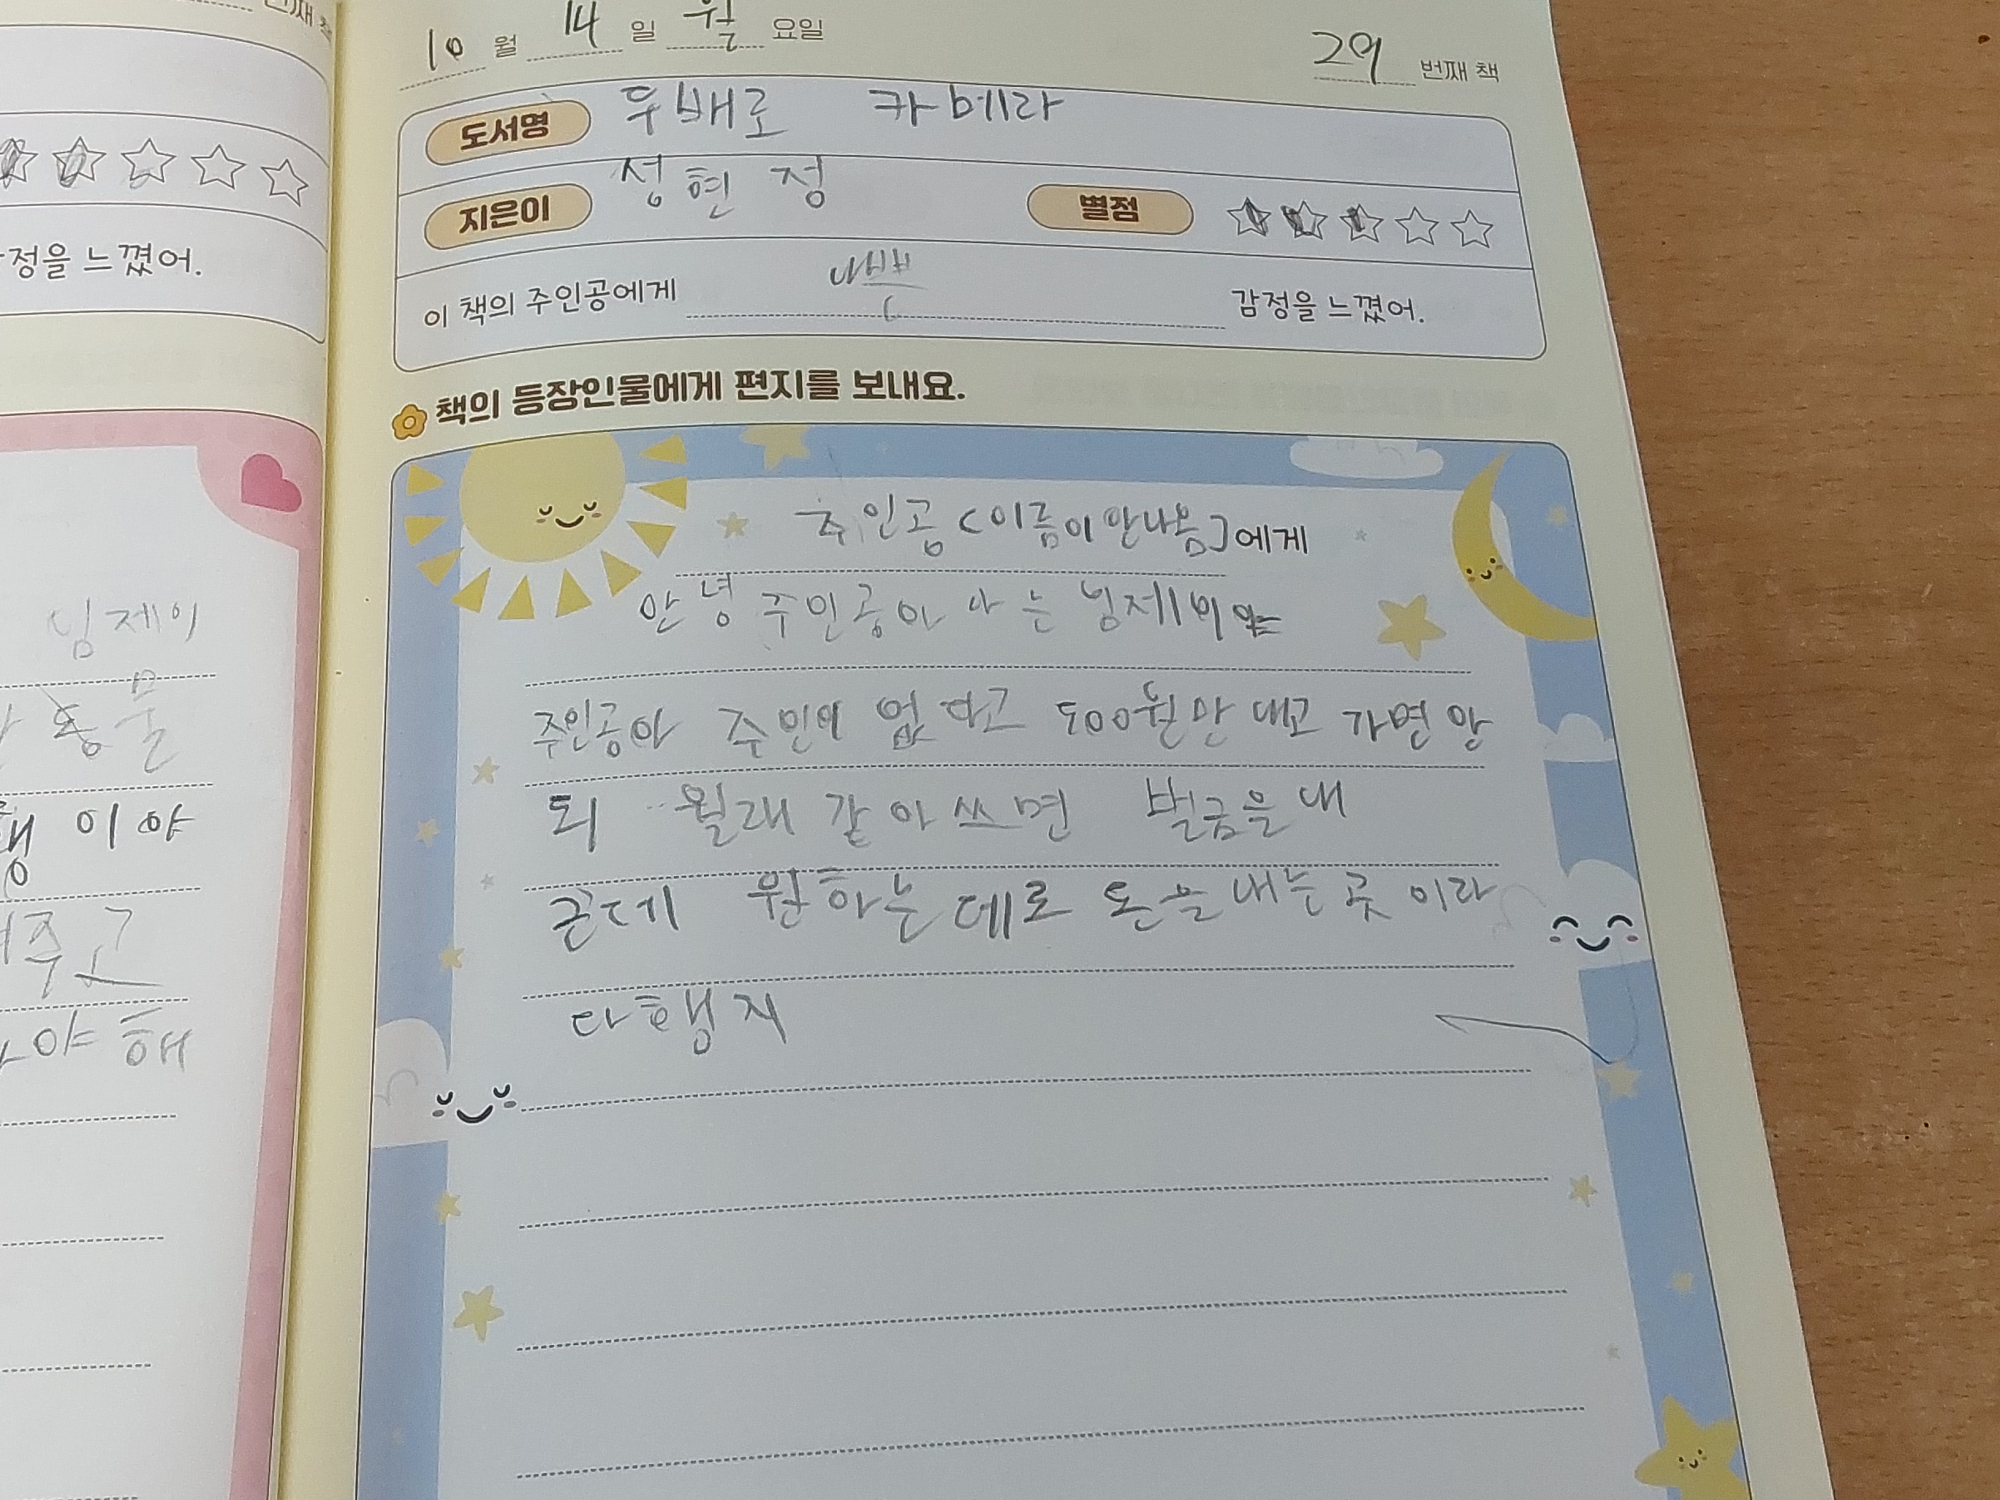 번째 책
정을 느꼈어.
님제이
동물
이야
주고
야 해
10 월 14 일 월 요일
29 번째 책
도서명 두배로 카메라
지은이 성현정 별점
이 책의 주인공에게 나쁜 감정을 느꼈어.
책의 등장인물에게 편지를 보내요.
주인공(이름이안나옴)에게
안녕 주인공아 나는 님제이야
주인공아 주인이 없다고 500원만 내고 가면 안
되 원래 같아쓰면 벌금을 내
근데 원하는데로 돈을 내는 곳 이라
다행지